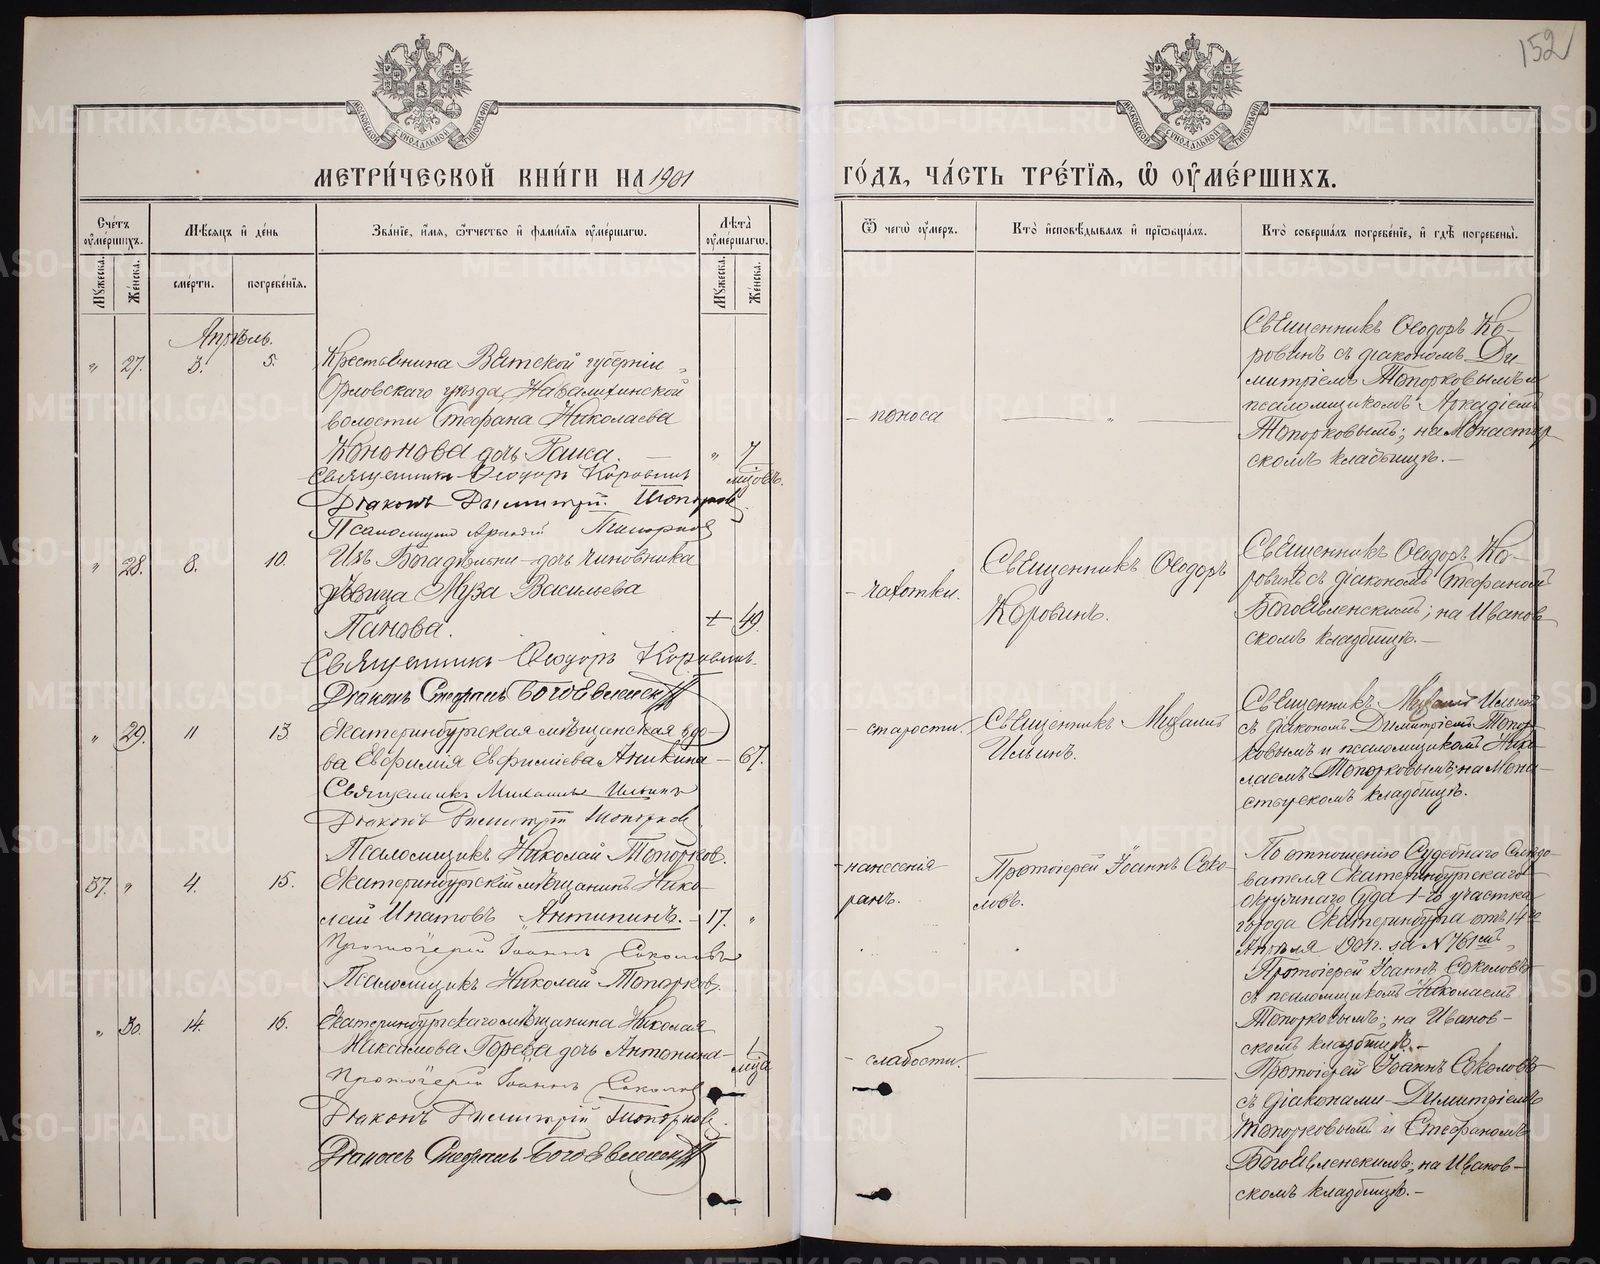 152
МЕТРИ́ЧЕСКОЙ КНИ́ГИ НА 1901
ГО́ДЪ, ЧА́СТЬ ТРЕ́ТІЯ, Ѿ ОУ҆МЕ́РШИХЪ.
Сче́тъ оу҆ме́ршихъ.
Мꙋжеска.
Же́нска.
Мѣ́сяцъ и҆ де́нь
сме́рти.
погребе́нія.
Зва́ніе, и҆́мя, ѻ҆́тчество и҆ фами́лія оу҆ме́ршагѡ.
Лѣ́та оу҆ме́ршагѡ.
Мꙋжеска.
Же́нска.
Ѿ чегѡ̀ оу҆́меръ.
Кто̀ и҆сповѣ́дывалъ и҆ прїѡбща́лъ.
Кто̀ соверша́лъ погребе́ніе, и҆ гдѣ̀ погребены̀.
Апрѣль.
" 27. 3. 5.
Крестьянина Вятской губерніи
Орловскаго уѣзда,
волости Стефана Николаева
Кононова дочь Таиса. — " 7 мѣсяцъ.
Священникъ Ѳеодоръ Коровинъ
Діаконъ Димитрій Топорков
Псаломщик Аркадій Топорков
- поноса
— " —
Священникъ Ѳеодоръ Ко-
ровинъ съ діакономъ Ди
митріемъ Топорковымъ и
псаломщикомъ Аркадіемъ
Топорковымъ; на Монастыр
скомъ кладбищѣ. —
" 28. 8. 10.
Изъ Богадѣльни - дочь чиновника
дѣвица Муза Васильева
Панова. 49.
Священникъ Ѳеодоръ Коровинъ.
Діаконъ Стефанъ Богоявленскій
- чахотки.
Священникъ Ѳеодоръ
Коровинъ.
Священникъ Ѳеодоръ Ко-
ровинъ съ діакономъ Стефаномъ
Богоявленскимъ; на Иванов
скомъ кладбищѣ. —
" 29. 11 13
Екатеринбургская мѣщанская вдо-
ва Евфимія Аникина — 67.
Священникъ Михаилъ Ильинъ
Діаконъ Димитрій Топорков
Псаломщикъ Николай Топорков.
- старости.
Священникъ Михаилъ
Ильинъ.
Священникъ Михаилъ Ильинъ
съ діакономъ Димитріемъ Топор
ковымъ и псаломщикомъ Нико
лаемъ Топорковымъ; на Мона-
стырскомъ кладбищѣ.
37. " 4. 15.
Екатеринбургскій мѣщанинъ Нико-
лай Ипатовъ Антипинъ. - 17. "
Протоіерей Іоаннъ Соколовъ
Псаломщикъ Николай Топорков.
- нанесенія
ранъ.
Протоіерей Іоаннъ Соко-
ловъ.
По отношенію Судебнаго Слѣдо-
вателя Екатеринбургскаго
Окружнаго Суда 1-го участка
города Екатеринбурга отъ 14го
Апрѣля 1901г. за №
Протоіерей Іоаннъ Соколовъ
съ псаломщикомъ Николаемъ
Топорковымъ; на Иванов-
скомъ кладбищѣ. -
" 30. 14. 16.
Екатеринбургскаго мѣщанина Николая
Максимова дочь Антонина — 1 мѣсяца
Протоіерей Іоаннъ Соколов
Діаконъ Димитрій Топорков.
Діаконъ Стефанъ Богоявленскій
- слабости.
Протоіерей Іоаннъ Соколовъ
съ діаконами Димитріемъ
Топорковымъ и Стефаномъ
Богоявленскимъ; на Иванов-
скомъ кладбищѣ. -
METRIKI.GASO-URAL.RU